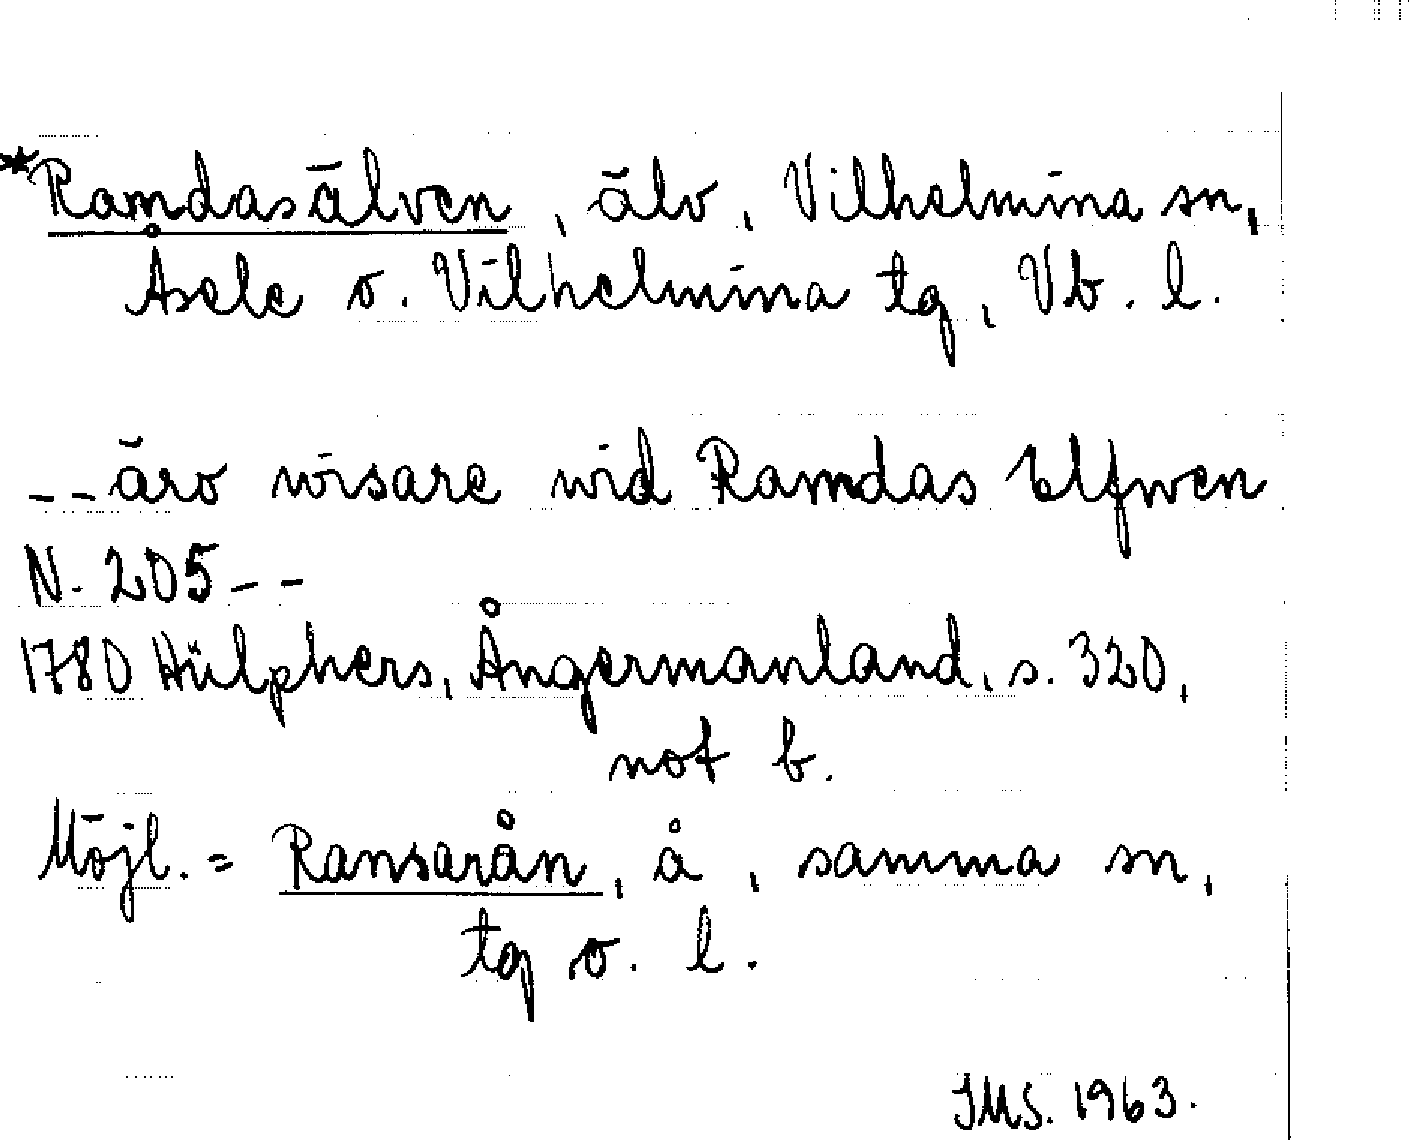 *Ramdasälven, älv, Vilhelmina sn,
Åsele o. Vilhelmina tg, Vb. l.
--äro wisare wid Ramdas Elfwen
N. 205--
1780 Hülphers, Ångermanland, s. 320,
not b.
Möjl. = Ransarån, å, samma sn,
tg o. l.
JMS. 1963.